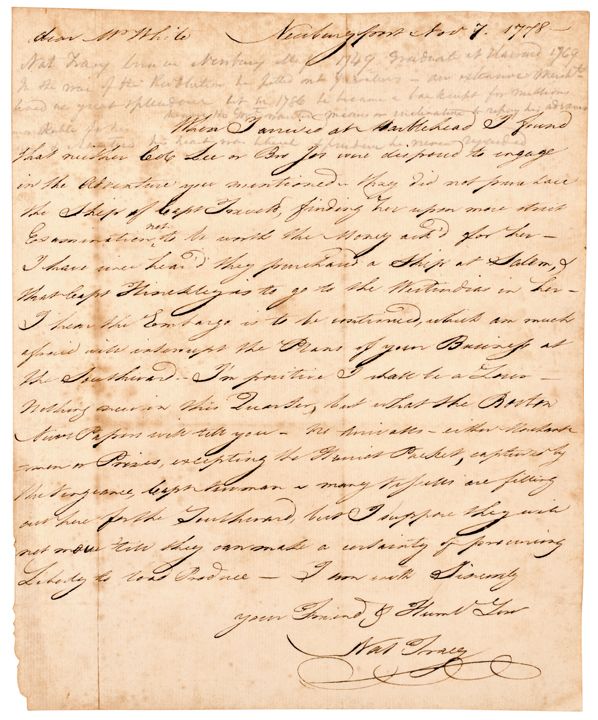 dear Mr White Newburyport Nov 7. 1778 —
Nat Tracy born in Newbury 1749 graduate at Harvard 1769
In the war of the Revolution he fitted out — an extensive Merch't
lived in great splendour but in 1786 he became a bankrupt for millions
means or inclination to repay his advances
he never
When I arrived at Marblehead I found
that neither Colo Lee or Bro Jos were disposed to engage
in the Adventure you mentioned — they did not purchase
the Ship of Capt finding her upon more strict
Examination, not to be worth the Money ask'd for her —
I have since hear'd they purchased a Ship at Salem, &
that Capt is to go to the Westindies in her —
I hear the Embargo is to be continued, which am much
afraid will interrupt the Plans of your Business at
the Southward — I'm positive I shall be a
Nothing new in this Quarter, but what the Boston
News Papers will tell you — No Arrivals — either Merchant
men or Prizes, excepting the Harriot Packet, captured by
the Vengeance, Capt Newman — many Vessels are fitting
out here for the Southward, but I suppose they will
not move till they can make a certainty of procuring
Liberty to load Produce — I am with Sincerity
your Friend & Humbl Serv
Nat Tracy